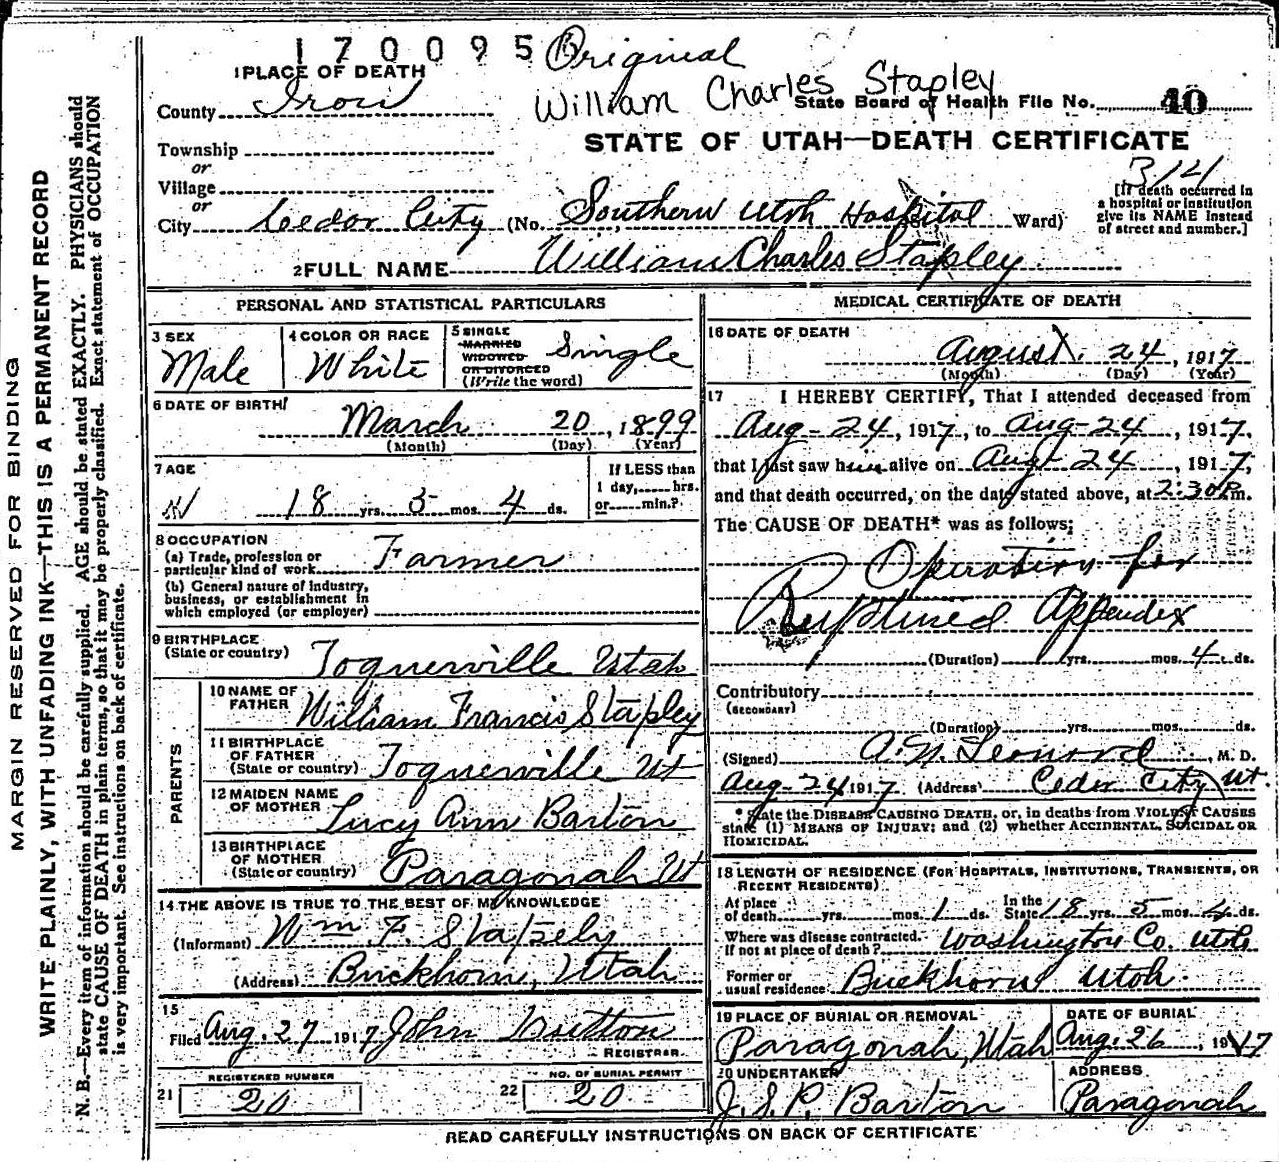 170095 Original
William Charles Stapley
1 PLACE OF DEATH
County Iron
State Board of Health File No. 40
STATE OF UTAH—DEATH CERTIFICATE
Township
or
Village
or
City Cedar City (No. Southern Utah Hospital Ward)
[If death occurred in
a hospital or institution
give its NAME instead
of street and number.]
2 FULL NAME William Charles Stapley
PERSONAL AND STATISTICAL PARTICULARS
3 SEX
Male
4 COLOR OR RACE
White
5 SINGLE
MARRIED
WIDOWED
OR DIVORCED
(Write the word)
Single
6 DATE OF BIRTH
March 20, 1899
(Month) (Day) (Year)
7 AGE
18 yrs. 5 mos. 4 ds.
If LESS than
1 day, hrs.
or min.?
8 OCCUPATION
(a) Trade, profession or
particular kind of work Farmer
(b) General nature of industry,
business, or establishment in
which employed (or employer)
9 BIRTHPLACE
(State or country) Toquerville Utah
PARENTS
10 NAME OF
FATHER William Francis Stapley
11 BIRTHPLACE
OF FATHER
(State or country) Toquerville Ut
12 MAIDEN NAME
OF MOTHER Lucy Ann Barton
13 BIRTHPLACE
OF MOTHER
(State or country) Paragonah Ut
14 THE ABOVE IS TRUE TO THE BEST OF MY KNOWLEDGE
(Informant) Wm. F. Stapely
(Address) Buckhorn, Utah
15
Filed Aug. 27 1917 John
REGISTRAR
21 REGISTERED NUMBER
20
22 NO. OF BURIAL PERMIT
20
MEDICAL CERTIFICATE OF DEATH
16 DATE OF DEATH
August 24, 1917
(Month) (Day) (Year)
17 I HEREBY CERTIFY, That I attended deceased from
Aug-24, 1917, to Aug-24, 1917,
that I last saw him alive on Aug-24, 1917,
and that death occurred, on the date stated above, at 2:30 P.m.
The CAUSE OF DEATH* was as follows;
Operation for
Ruptured Appendix
(Duration) yrs. mos. 4 ds.
Contributory
(SECONDARY)
(Duration) yrs. mos. ds.
(Signed) A.N. Leonard, M. D.
Aug-24 1917 (Address) Cedar City Ut.
* State the DISEASE CAUSING DEATH, or, in deaths from VIOLENT CAUSES
state (1) MEANS OF INJURY; and (2) whether ACCIDENTAL, SUICIDAL OR
HOMICIDAL.
18 LENGTH OF RESIDENCE (FOR HOSPITALS, INSTITUTIONS, TRANSIENTS, OR
RECENT RESIDENTS)
At place
of death yrs. mos. 1 ds. In the
State 18 yrs. 5 mos. 4 ds.
Where was disease contracted.
If not at place of death? Washington Co. Utah
Former or
usual residence Buckhorn Utah.
19 PLACE OF BURIAL OR REMOVAL
Paragonah, Utah
DATE OF BURIAL
Aug. 26, 1917
20 UNDERTAKER
J.S.P. Barton
ADDRESS
Paragonah
READ CAREFULLY INSTRUCTIONS ON BACK OF CERTIFICATE
MARGIN RESERVED FOR BINDING
WRITE PLAINLY, WITH UNFADING INK—THIS IS A PERMANENT RECORD
N. B.—Every item of information should be carefully supplied. AGE should be stated EXACTLY. PHYSICIANS should
state CAUSE OF DEATH in plain terms, so that it may be properly classified. Exact statement of OCCUPATION
is very important. See instructions on back of certificate.